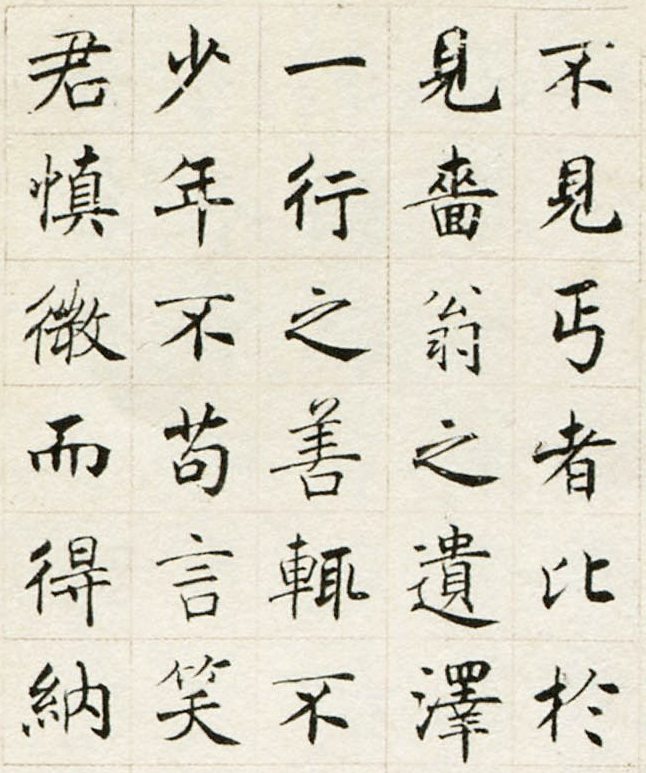 不見丐者比於
見嗇翁之遺澤
一行之善輒不
少年不苟言笑
君慎微而得納